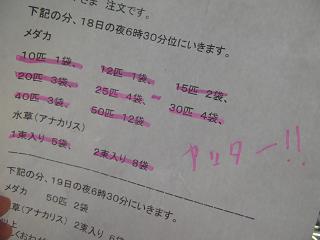 さま 注文です。
下記の分、18日の夜6時30分位にいきます。
メダカ
10匹 1袋、 12匹 1袋、 15匹 2袋、
20匹 3袋、 25匹 4袋、 30匹 4袋、
40匹 3袋、 50匹 12袋
水草(アナカリス)
1束入り 5袋、 2束入り 8袋
ヤッター!!
下記の分、19日の夜6時30分にいきます。
メダカ 50匹 2袋
草(アナカリス) 2束入り 6袋